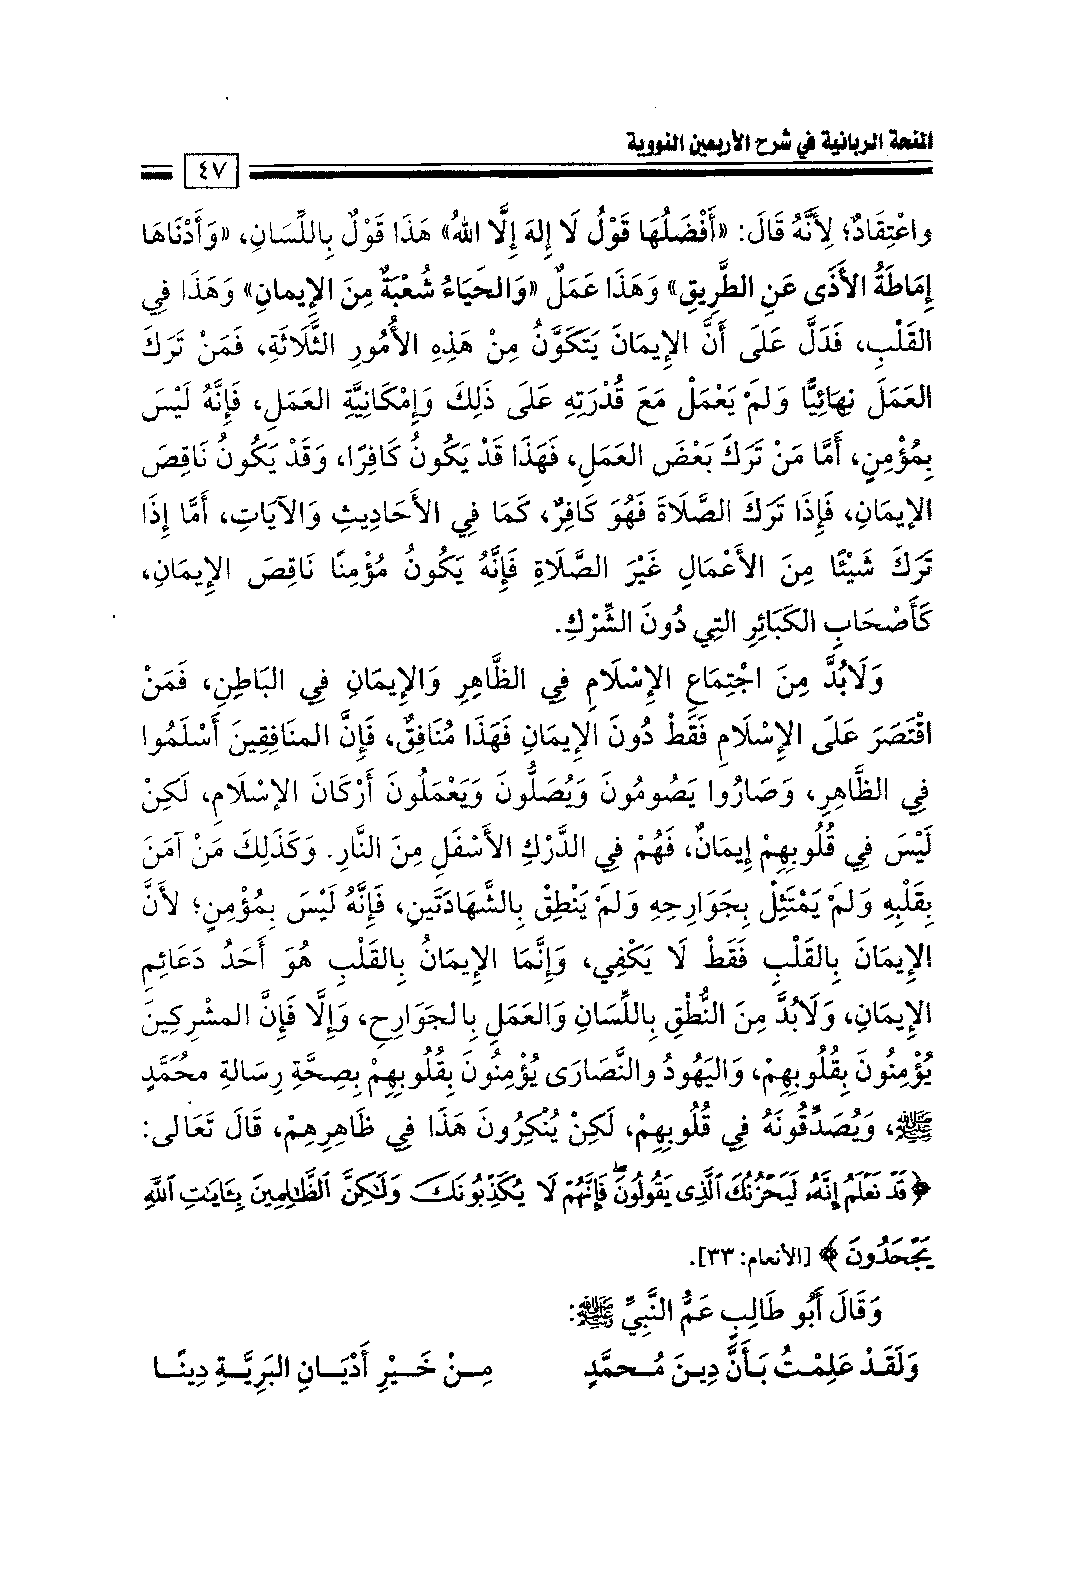 المنحة الربانية في شرح الأربعين النووية
٤٧
واعْتِقَادٌ؛ لِأَنَّهُ قَالَ: «أَفْضَلُهَا قَوْلُ لَا إِلهَ إِلَّا اللهُ» هَذَا قَوْلٌ بِاللِّسَانِ، «وَأَدْنَاهَا
إِمَاطَةُ الأَذَى عَنِ الطَّرِيقِ» وَهَذَا عَمَلٌ «وَالحَيَاءُ شُعْبَةٌ مِنَ الإِيمانِ» وَهَذَا فِي
القَلْبِ، فَدَلَّ عَلَى أَنَّ الإِيمَانَ يَتَكَوَّنُ مِنْ هَذِهِ الأُمُورِ الثَّلَاثَةِ، فَمَنْ تَرَكَ
العَمَلَ نِهَائِيًّا وَلَمْ يَعْمَلْ مَعَ قُدْرَتِهِ عَلَى ذَلِكَ وَإِمْكَانِيَّةِ العَمَلِ، فَإِنَّهُ لَيْسَ
بِمُؤْمِنٍ، أَمَّا مَنْ تَرَكَ بَعْضَ العَمَلِ، فَهَذَا قَدْ يَكُونُ كَافِرًا، وَقَدْ يَكُونُ نَاقِصَ
الإِيمَانِ، فَإِذَا تَرَكَ الصَّلَاةَ فَهُوَ كَافِرٌ، كَمَا فِي الأَحَادِيثِ وَالآيَاتِ، أَمَّا إِذَا
تَرَكَ شَيْئًا مِنَ الأَعْمَالِ غَيْرَ الصَّلَاةِ فَإِنَّهُ يَكُونُ مُؤْمِنًا نَاقِصَ الإِيمَانِ،
كَأَصْحَابِ الكَبَائِرِ التِي دُونَ الشِّرْكِ.
وَلَابُدَّ مِنَ اجْتِمَاعِ الإِسْلَامِ فِي الظَّاهِرِ وَالإِيمَانِ فِي البَاطِنِ، فَمَنْ
اقْتَصَرَ عَلَى الإِسْلَامِ فَقَطْ دُونَ الإِيمَانِ فَهَذَا مُنَافِقٌ، فَإِنَّ المنَافِقِينَ أَسْلَمُوا
فِي الظَّاهِرِ، وَصَارُوا يَصُومُونَ وَيُصَلُّونَ وَيَعْمَلُونَ أَرْكَانَ الإِسْلَامِ، لَكِنْ
لَيْسَ فِي قُلُوبِهِمْ إِيمَانٌ، فَهُمْ فِي الدَّرْكِ الأَسْفَلِ مِنَ النَّارِ. وَكَذَلِكَ مَنْ آمَنَ
بِقَلْبِهِ وَلَمْ يَمْتَثِلْ بِجَوَارِحِهِ وَلَمْ يَنْطِقْ بِالشَّهَادَتَينِ، فَإِنَّهُ لَيْسَ بِمُؤْمِنٍ؛ لأَنَّ
الإِيمَانَ بِالقَلْبِ فَقَطْ لَا يَكْفِي، وَإِنَّمَا الإِيمَانُ بِالقَلْبِ هُوَ أَحَدُ دَعَائِمِ
الإِيمَانِ، وَلَابُدَّ مِنَ النُّطْقِ بِاللِّسَانِ وَالعَمَلِ بِالجَوَارِحِ، وَإِلَّا فَإِنَّ المشْرِكِينَ
يُؤْمِنُونَ بِقُلُوبِهِمْ، وَاليَهُودُ والنَّصَارَى يُؤْمِنُونَ بِقُلُوبِهِمْ بِصِحَّةِ رِسَالَةِ محُمَّدٍ
ﷺ، وَيُصَدِّقُونَهُ فِي قُلُوبِهِمْ، لَكِنْ يُنْكِرُونَ هَذَا فِي ظَاهِرِهِمْ، قَالَ تَعَالى:
﴿قَدْ نَعْلَمُ إِنَّهُۥ لَيَحْزُنُكَ ٱلَّذِى يَقُولُونَۖ فَإِنَّهُمْ لَا يُكَذِّبُونَكَ وَلَٰكِنَّ ٱلظَّٰلِمِينَ بِـَٔايَٰتِ ٱللَّهِ
يَجْحَدُونَ﴾ [الأنعام: ٣٣].
وَقَالَ أَبُو طَالِبٍ عَمُّ النَّبِيِّ ﷺ:
وَلَقَدْ عَلِمْتُ بَأَنَّ دِينَ مُحمَّدٍ مِنْ خَيْرِ أَدْيَانِ البَرِيَّةِ دِينًا